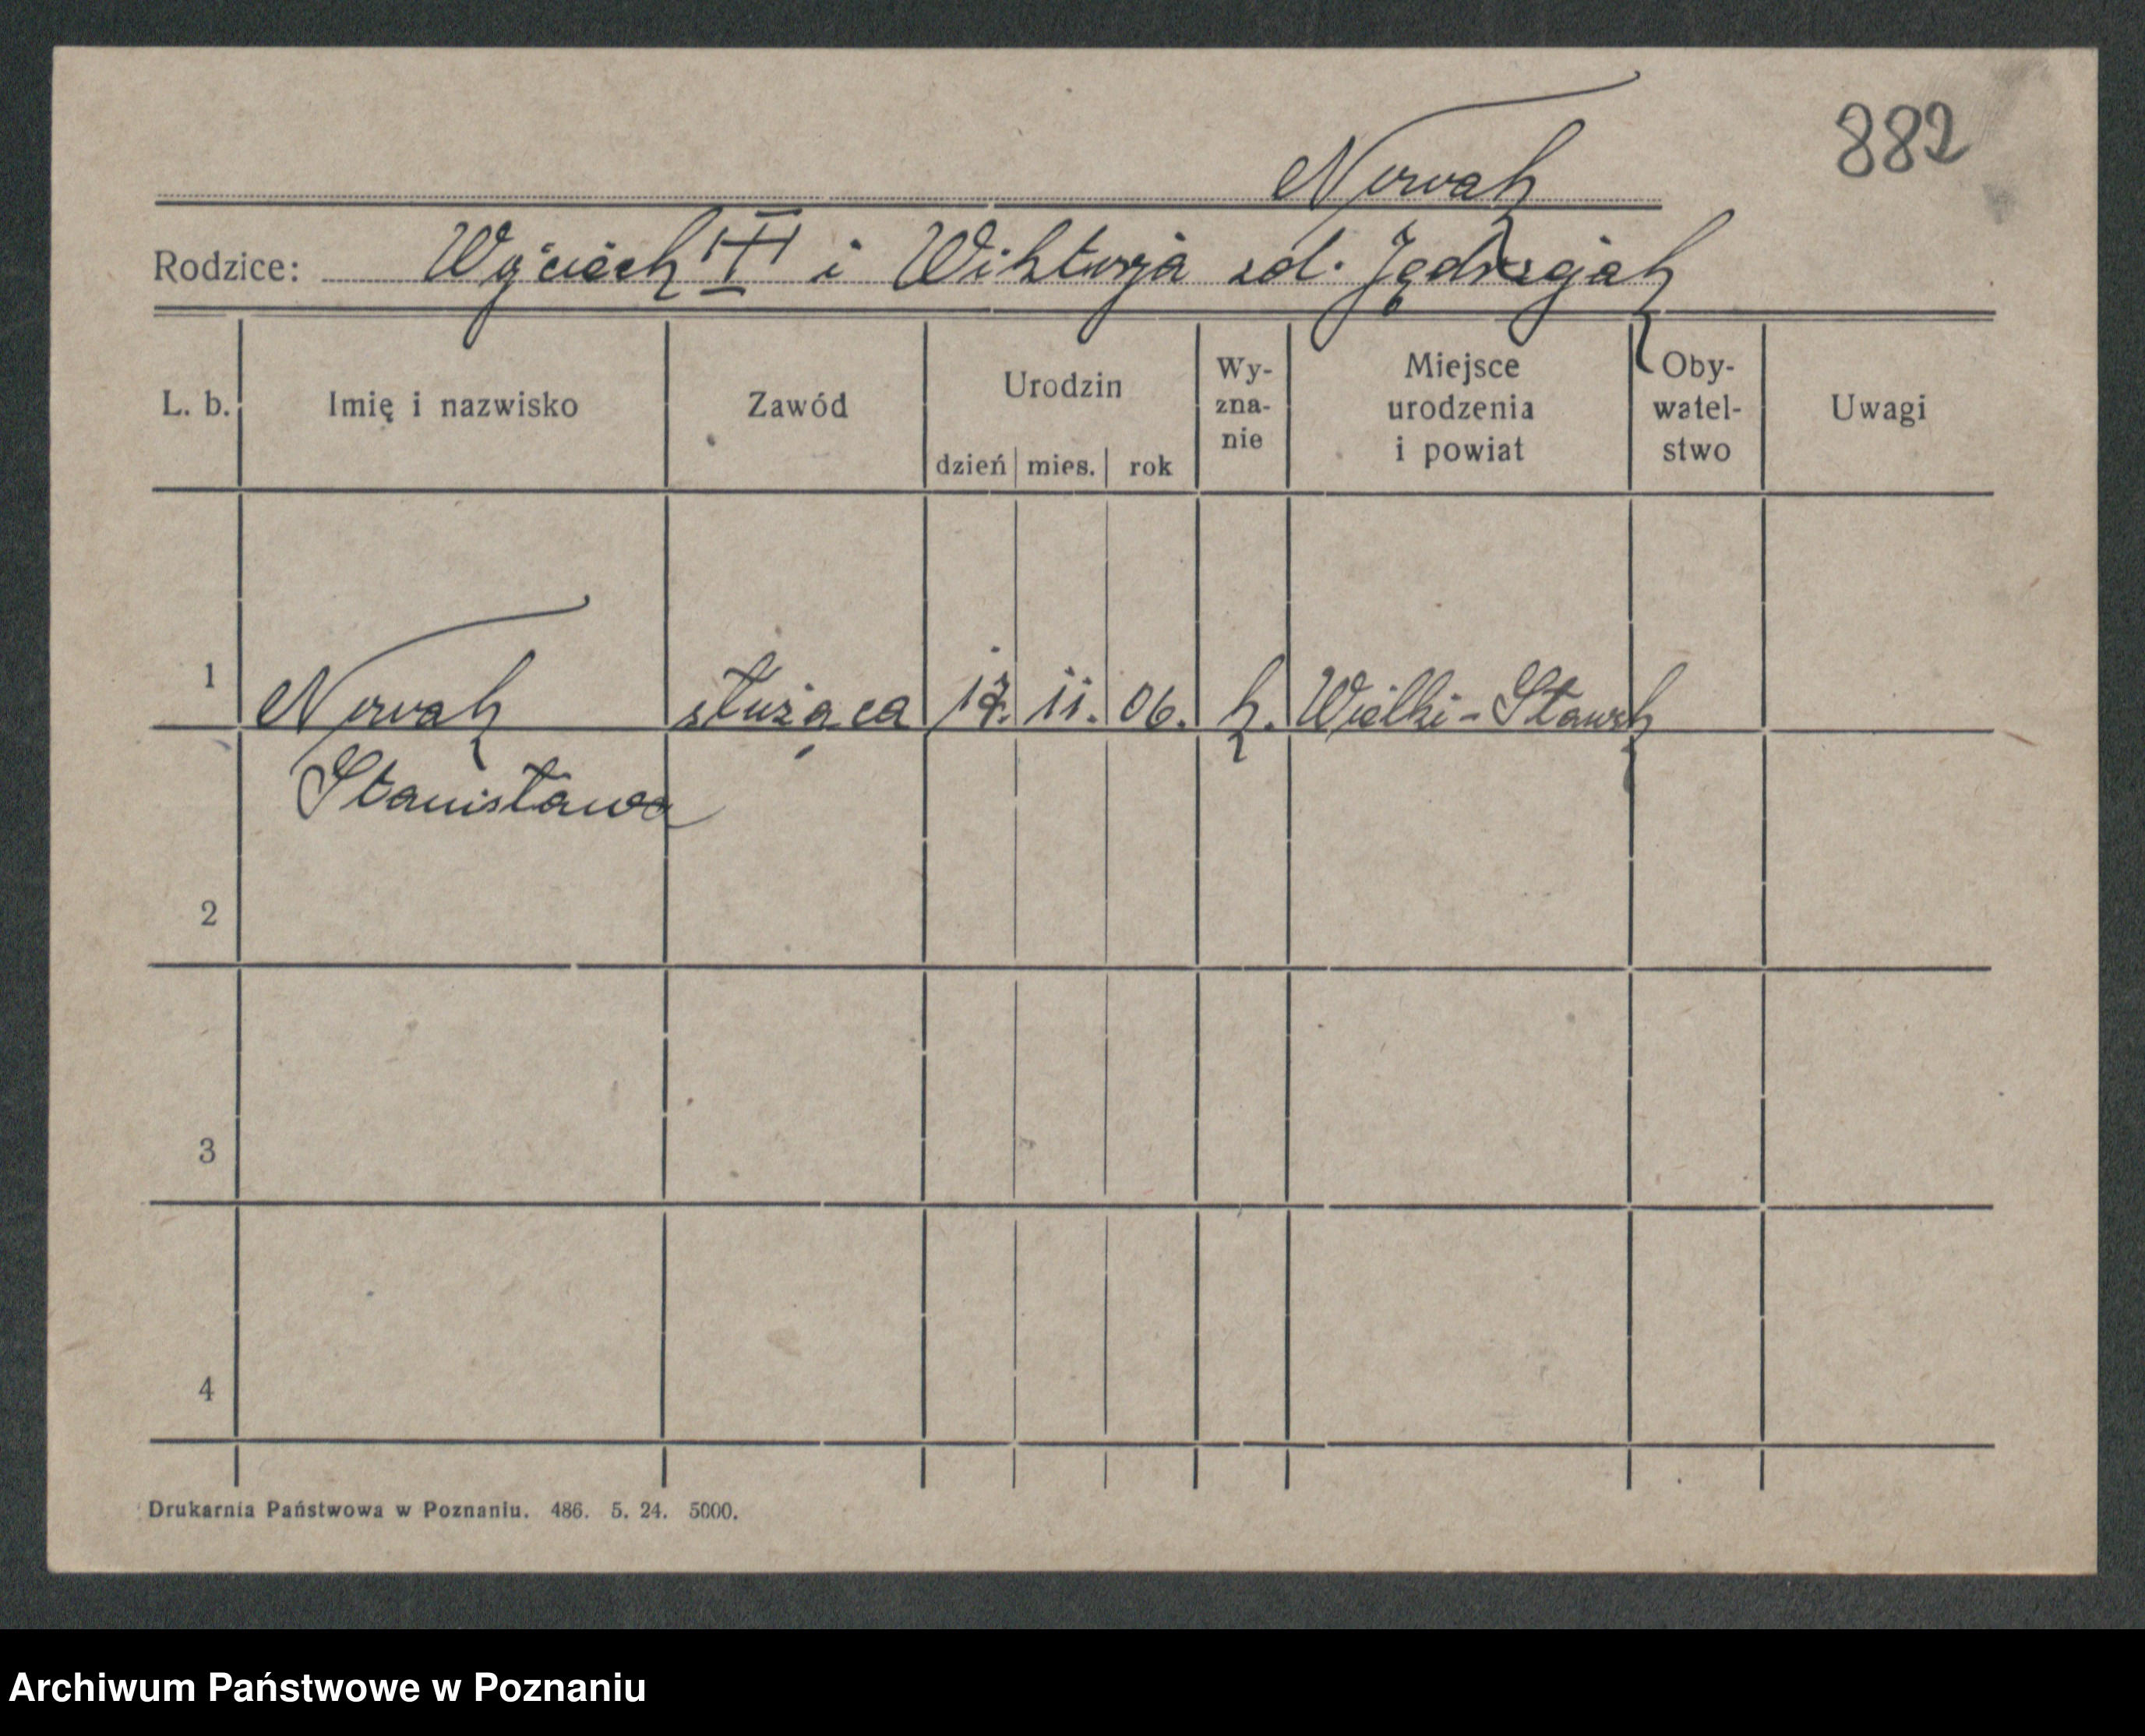 882
Nowak
Rodzice: Wojciech † i Wiktorja zd. Jędrzejak
L. b. Imię i nazwisko Zawód Urodzin dzień mies. rok Wy-zna-nie Miejsce urodzenia i powiat Oby-watel-stwo Uwagi
1 Nowak służąca 17. 11. 06. k. Wielki-
Stanisława
2
3
4
Drukarnia Państwowa w Poznaniu. 486. 5. 24. 5000.
Archiwum Państwowe w Poznaniu